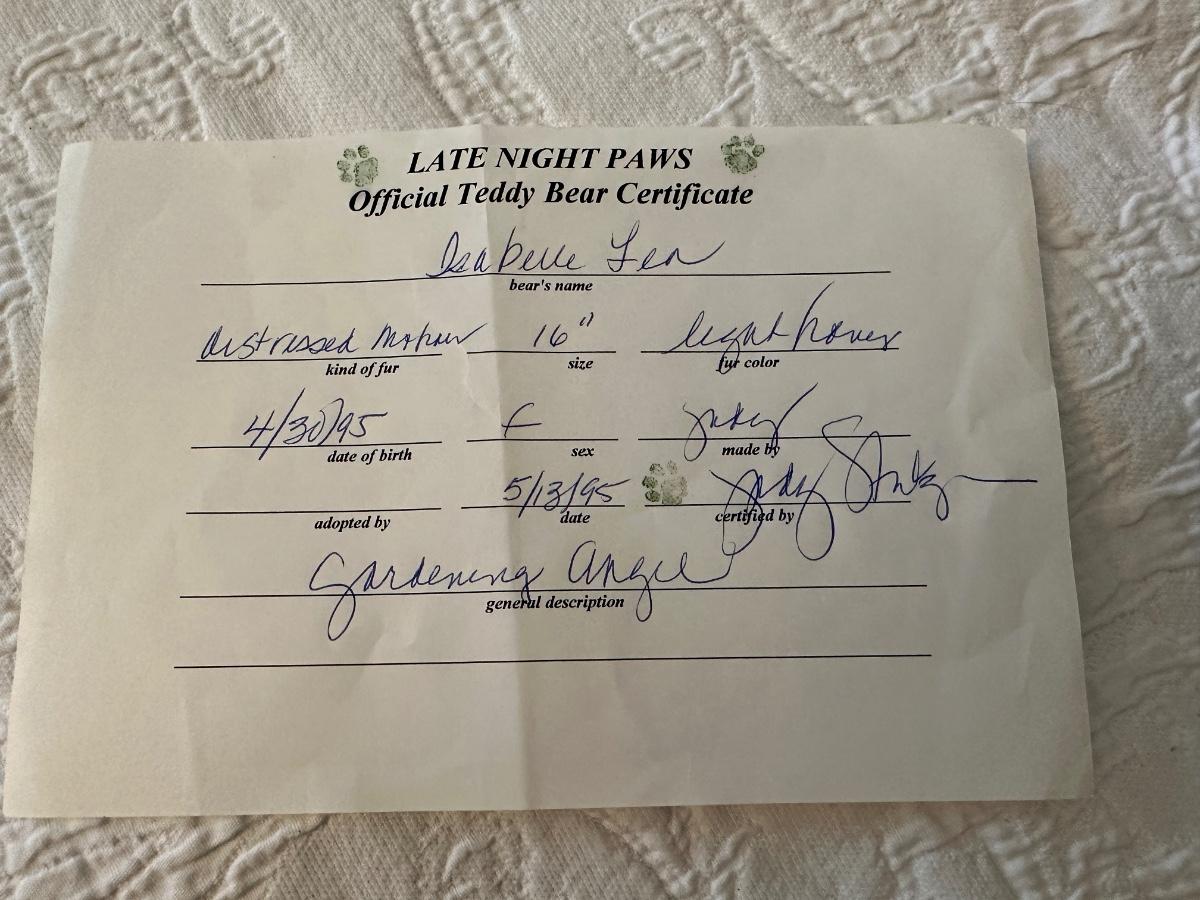 LATE NIGHT PAWS
Official Teddy Bear Certificate
Isabelle
bear's name
distressed Mohair 16" light honey
kind of fur size fur color
4/30/95 f Judy
date of birth sex made by
5/13/95 Judy
adopted by date certified by
Gardening Angel
general description